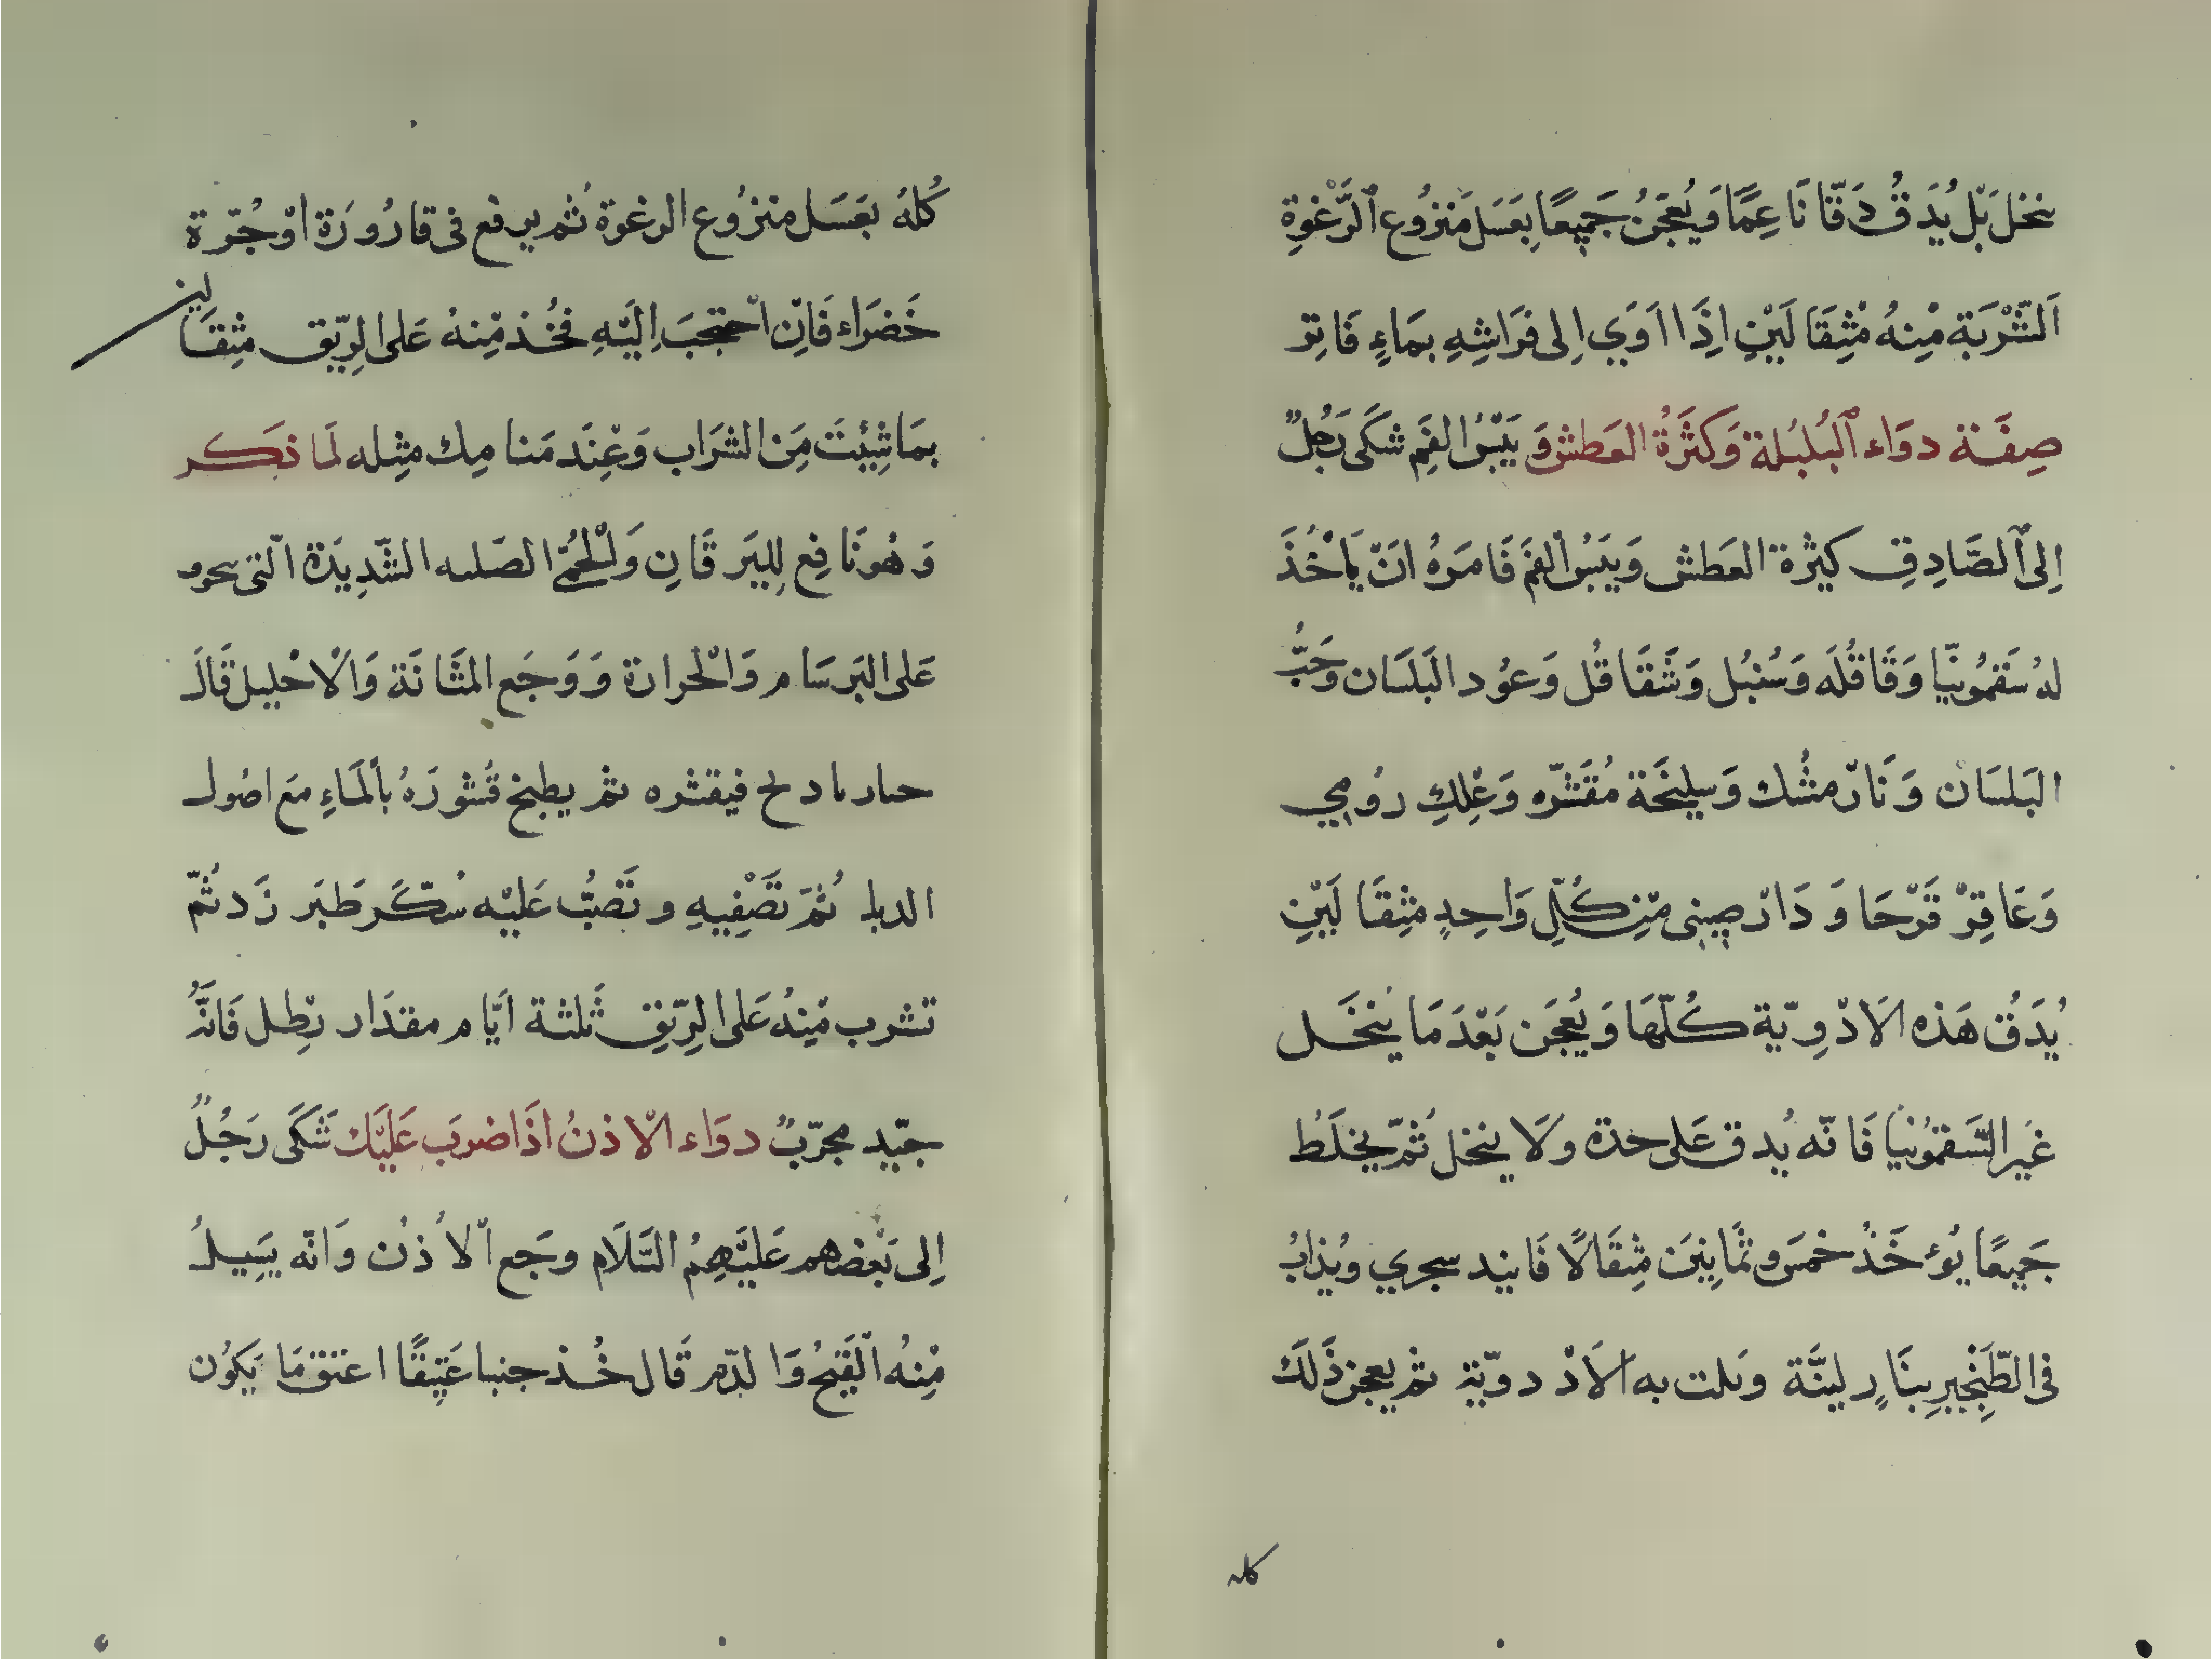 ينخل بَل يُدَقُّ دَقّاً نَاعِمًا وَيُعجَنُ جَميعًا بِعَسَل مَنزُوع ٱلرَّغوَةِ
اَلشَّرْبَة مِنهُ مِثِقَالَيْنِ اِذَا اَوَي اِلى فَرَاشِهِ بمَاءٍ فَاتِر
صِفَة دوَاء ٱلبُلبُلة وَكَثرَةُ العَطش وَيَبْسُ الفَمِ شكَى رَجُلٌ
اِلى ٱلصَّادِقِ كَثِرة العَطش وَيَبَسُ الفَم فَامَرهُ انّ يَاْخُذَ
لهُ سَقمُونيَّا وَقَاقُلَه وَسُنبُل وَشَقَاقُل وَعوُد البَلَسَان وَحَبُّ
البَلسَان وَنَارْمشُك وَسلِيخَة مُقَشَّره وَعْلِكِ رُومِي
وَعَاقِرْ قَرْحَا وَدَارْصِينى مِنِ كُلِّ وَاحِدٍ مثِقَالَيْنِ
يُدَقُ هَذه الاَدْوِيّة كُلّهَا وَيُعجَن بَعْدَ مَا يُنخَل
غَير السَّقمُونيا فَانّه يُدق عَلى حدَة وَلَا ينخل ثُمّ يخلَطُ
جَميعًا يُؤخَذُ خمسَ وثمَانِينَ مِثِقَالًا فَانيد سجري ويُذابُ
فى الطّبَنْجيرِ بِنَارٍ لينَّة ويلت به الاَدْدويّة ثمّ يعجن ذَلَكَ
كله
كُلهُ بعَسَل منزُوع الرغوة ثُم يرفع فى قارُورَة اوْ جُرّة
خَضرَاء فَاِنّ احتجبَ اِليْهِ فخُذ مِنهُ عَلى الرِيّق مثِقَالين
بمَا شِئِتَ مِنَ الشرَاب وَعِنَد مَنامِك مثِله لَما ذكر
وَهُو نَافِع لِليَرقَانِ وَلْحُمّى الصّلبه الشَّدِيدَة الّتى
عَلى البَرسَام وَالْحرارة وَوَجَع المَثَانَة وَالاحْليل قَالَ
فيقشره ثم يطبخ قُشورَهُ بالَمَاءِ مَع اصُول
ثُمّ تَصْفِيهِ وتَصُبُّ عَليْه سُكّر طَبَر زَد ثُمّ
تشرب مِنهُ عَلى الرِيّقِ ثَلثة ايَّام مقدَار رطِل فَانّهُ
جيّد مجرّبٌ دوَاء الاْذنُ اذَا ضرَبَ عَليْك شَكَى رَجُلٌ
اِلى بَعْضهم عَليْهِمُ السَّلَام وجَع الْاُذُن وَانّه يَسِيلُ
مْنِهُ القَيْحُ وَا لدّم قَال خُذ جنبا عَتِيقًا اعتق مَا يَكوُن